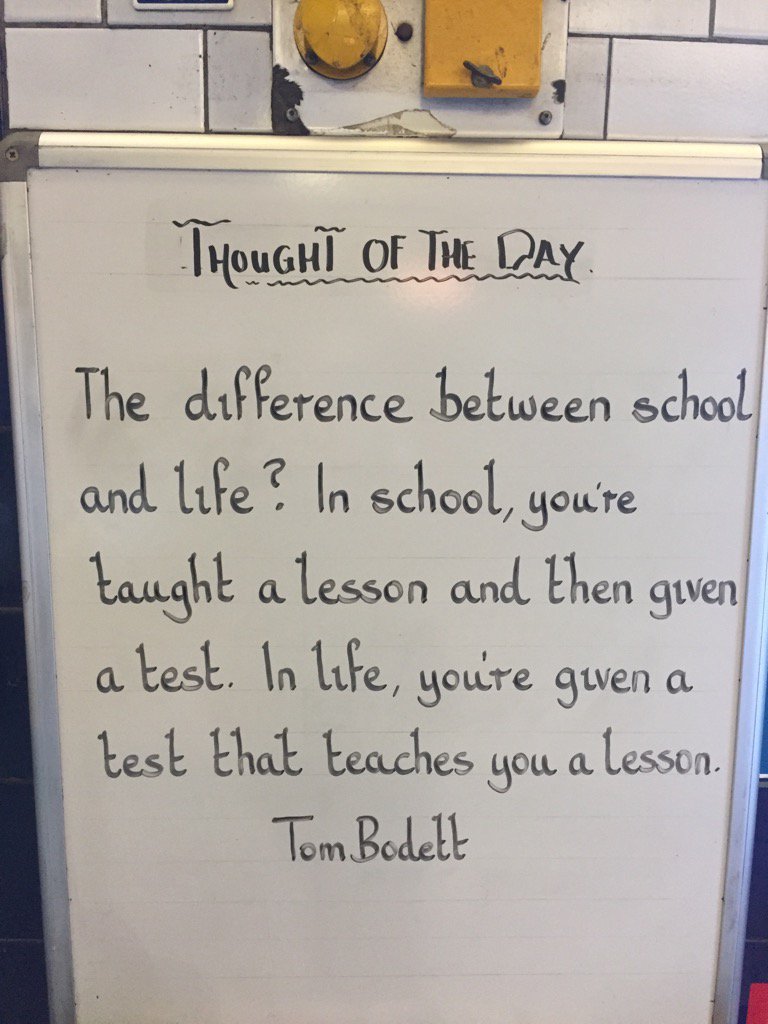 THOUGHT OF THE DAY.
The difference between school
and life? In school, you're
taught a lesson and then given
a test. In life, you're given a
test that teaches you a lesson.
Tom Bodett